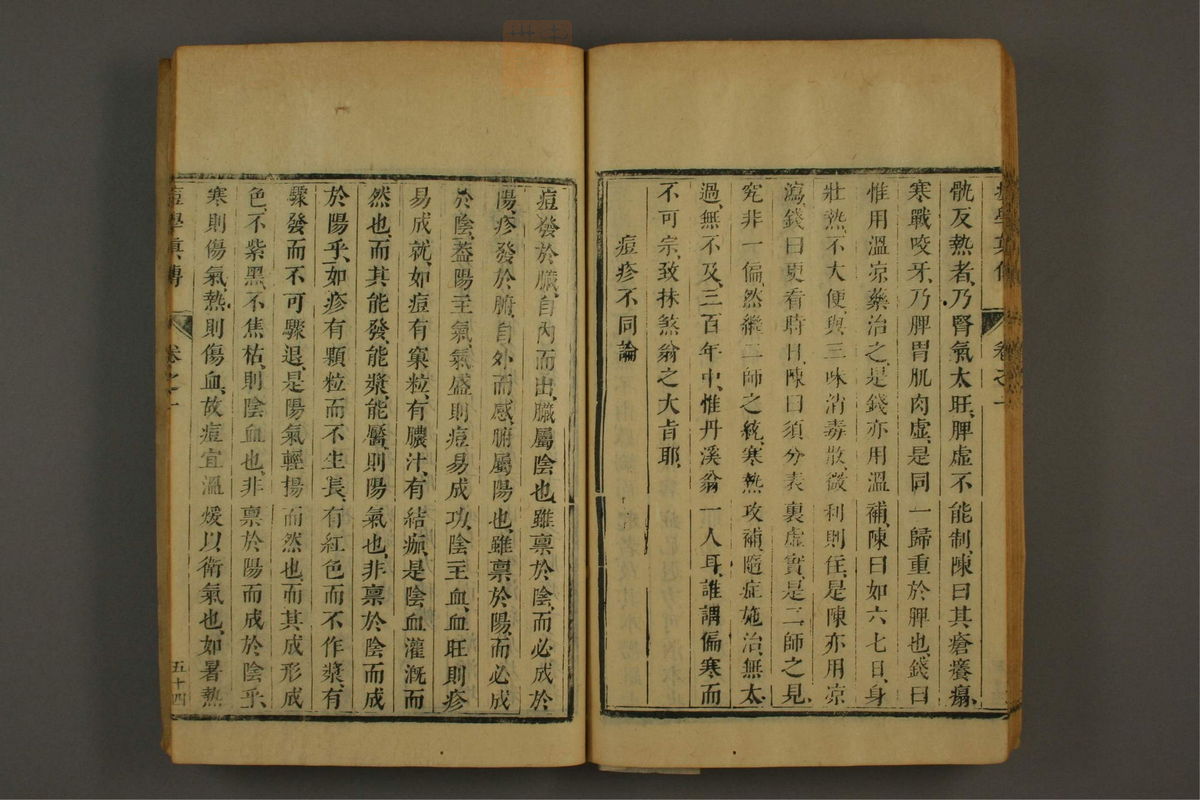 痘學真傳
卷之一
骫反熱者、乃腎氣太旺、脾虛不能制、陳曰其瘡癢癟、
寒戰咬牙、乃脾胃肌肉虛、是同一歸重於脾也、錢曰
惟用溫涼藥治之、是錢亦用溫補、陳曰如六七日、身
壯熱、不大便、與三味消毒散、微利則住、是陳亦用凉
瀉、錢曰更看時日、陳曰須分表裏虛實、是二師之見、
究非一偏、然繼二師之統、寒熱攻補、隨症施治、無太
過、無不及、三百年中、惟丹溪翁一人耳、誰謂偏寒而
不可宗、致抹煞翁之大旨耶、
痘疹不同論
痘發於臟、自內而出、臟屬陰也、雖禀於陰、而必成於
陽、疹發於腑、自外而感、腑屬陽也、雖禀於陽、而必成
於陰、葢陽主氣、氣盛則痘易成功、陰主血、血旺則疹
易成就、如痘有窠粒、有膿汁、有結痂、是陰血灌漑而
然也、而其能發、能漿、能靨、則陽氣也、非禀於陰而成
於陽乎、如疹有顆粒、而不生長、有紅色而不作漿、有
驟發而不可驟退、是陽氣輕揚而然也、而其成形成
色、不紫黑、不焦枯、則陰血也、非禀於陽而成於陰乎、
寒則傷氣、熱則傷血、故痘宜溫煖以衛氣也、如暑熱
痘學眞傳
卷之十
五十四